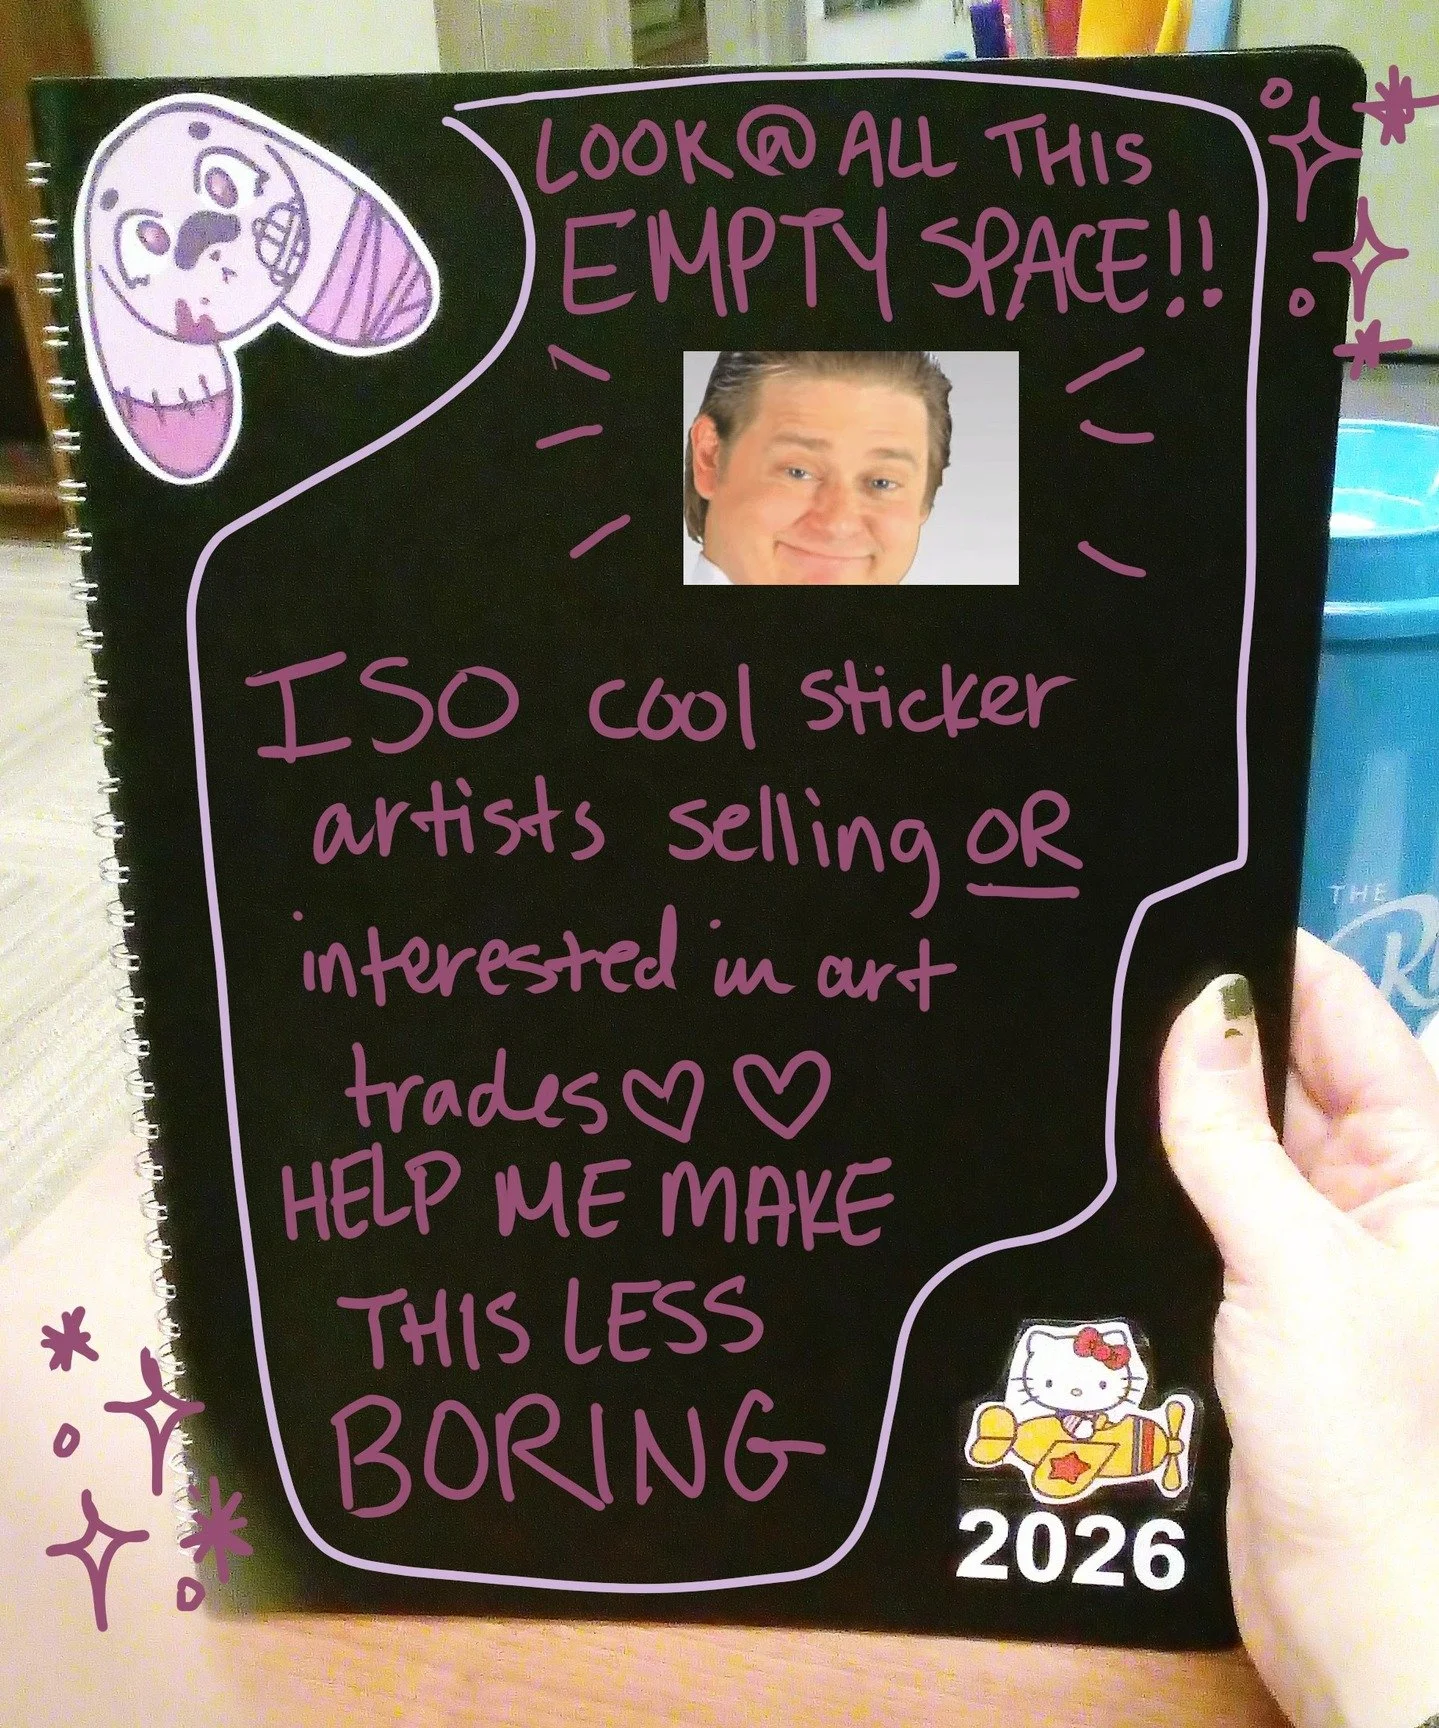 LOOK @ ALL THIS
EMPTY SPACE!!
ISO cool sticker
artists selling OR
interested in art
trades ♡ ♡
HELP ME MAKE
THIS LESS
BORING
2026
THE